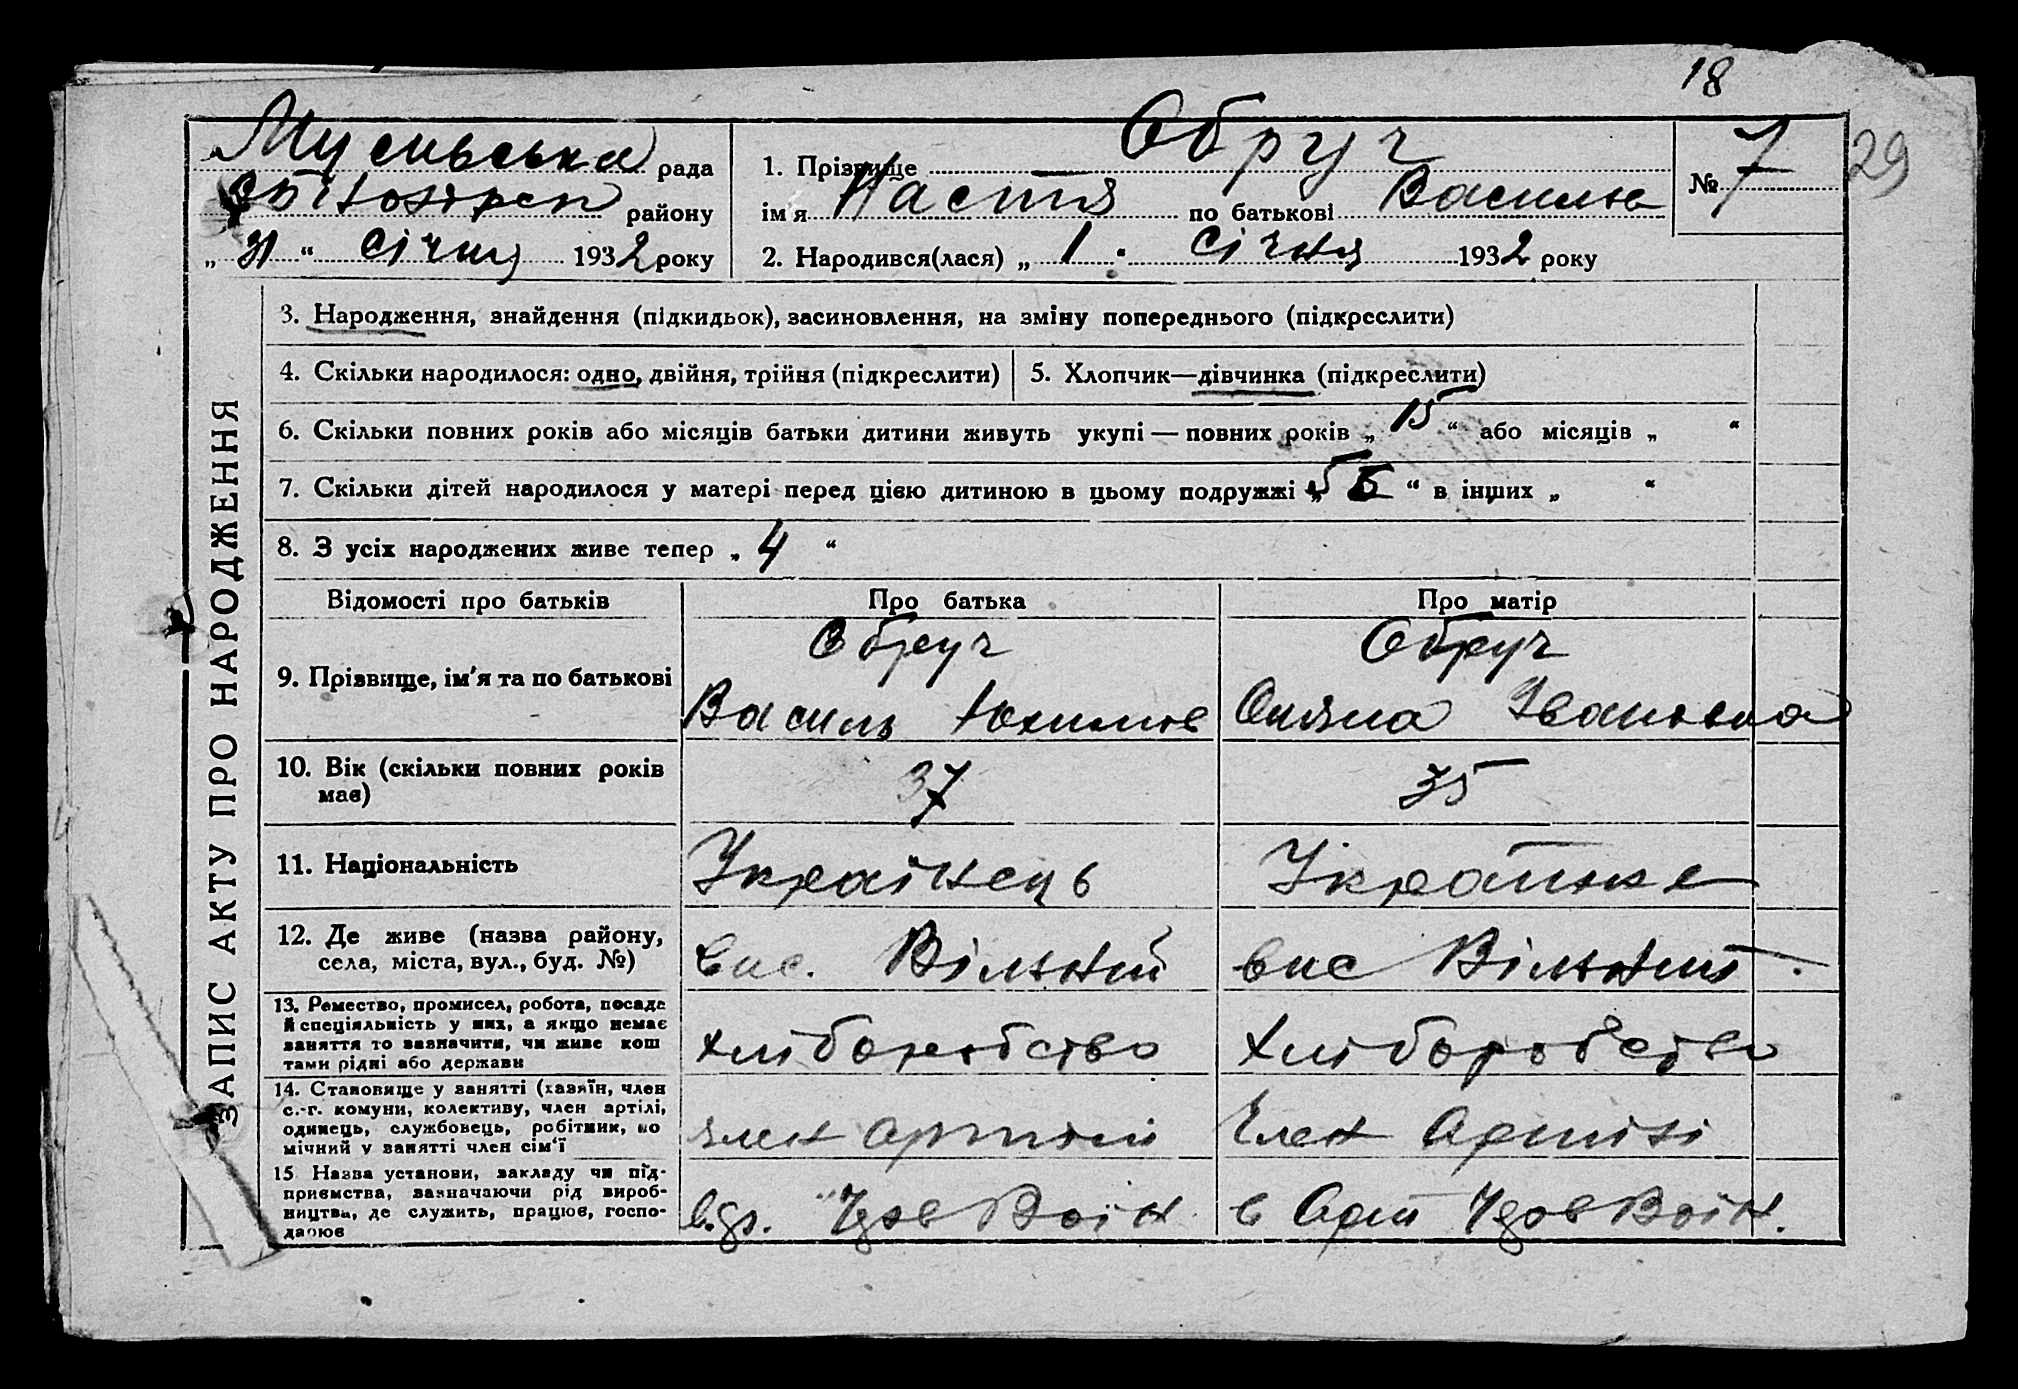 18
Мусиьська рада
району
„ 31 “ Січня 1932 року
1. Прізвище Обруч
ім'я Настя по батькові Василів
2. Народився(лася) „ 1 . Січня 1932 року
№ 7
29
ЗАПИС АКТУ ПРО НАРОДЖЕННЯ
3. Народження, знайдення (підкидьок), засиновлення, на зміну попереднього (підкреслити)
4. Скільки народилося: одно, двійня, трійня (підкреслити)
5. Хлопчик—дівчинка (підкреслити)
6. Скільки повних років або місяців батьки дитини живуть укупі — повних років „ 15 “ або місяців „ “
7. Скільки дітей народилося у матері перед цією дитиною в цьому подружжі „ 5 “ в інших „ “
8. З усіх народжених живе тепер „ 4 “
Відомості про батьків
Про батька
Про матір
9. Прізвище, ім'я та по батькові
Обруч
Василь Юхимов
Обруч
Івановна
10. Вік (скільки повних років
має)
37
35
11. Національність
Українець
Українка
12. Де живе (назва району,
села, міста, вул., буд. №)
вис. Вільний
вис Вільний.
13. Ремество, промисел, робота, посада
й спеціяльність у них, а якщо немає
заняття то зазначити, чи живе кош
тами рідні або держави
хліборобство
Хліборобство
14. Становище у занятті (хазяїн, член
с.-г. комуни, колективу, член артілі,
одинець, службовець, робітник, по
мічний у занятті член сім'ї
член артілі
Член Артілі
15 Назва установи, закладу чи під-
приємства, зазначаючи рід вироб-
ництва, де служить, працює, госпо-
дарює
в Арт